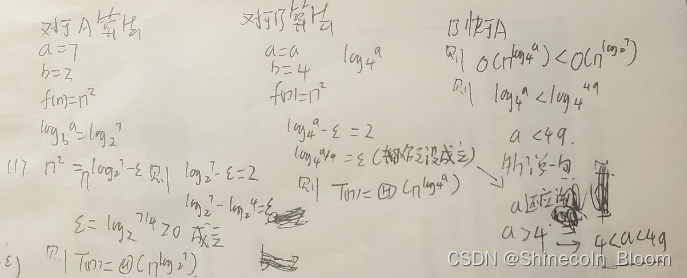 对于A算法
a=7
b=2
f(n)=n²
log_b^a=log_2^7
(1) n²=n^{log_2^7-ε} 则 log_2^7-ε=2
log_2^7-log_2^4=ε
ε=log_2^{7/4}>0 成立
则 T(n)=Θ(n^{log_2^7})
对于B算法
a=a
b=4
f(n)=n²
log_4^a
log_4^a-ε=2
log_4^{a/16}=ε
则 T(n)=Θ(n^{log_4^a})
B快于A
则 O(n^{log_4^a})<O(n^{log_2^7})
则 log_4^a<log_4^{49}
a<49.
a还应
a>4
→ 4<a<49
CSDN @Shinecoln_Bloom